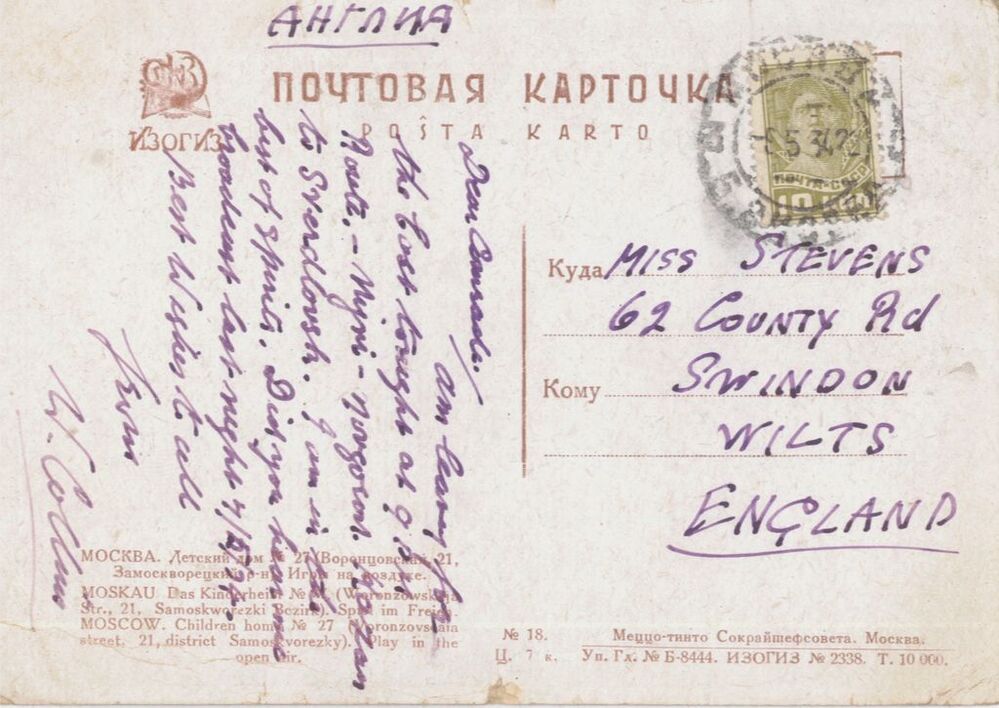 АНГЛИЯ
ПОЧТОВАЯ КАРТОЧКА
POŜTA KARTO
ИЗОГИЗ
5 34
ПОЧТА СССР
10 КОП
Dear Comrade,
Am leaving for
the East tonight at 9 p.m.
Route. - Nijni-Novgorod. Kazan
to Sverdlovsk. I am in the
best of spirits. Did you hear me
broadcast last night 4/5/34.
Best Wishes to all
Yours
W. Collins
Куда MISS STEVENS
62 COUNTY Rd
Кому SWINDON
WILTS
ENGLAND
МОСКВА. Детский дом № 27 (Воронцовская, 21,
Замоскворецкий р-н). Игры на воздухе.
MOSKAU. Das Kinderheim № 27 (Woronzowskaja
Str., 21, Samoskworezki Bezirk). Spiel im Freien.
MOSCOW. Children home № 27 (Woronzovskaia
street, 21, district Samoskvorezky). Play in the
open air.
№ 18.
Ц. 7 к.
Меццо-тинто Сокрайшефсовета. Москва.
Уп. Гл. № Б-8444. ИЗОГИЗ № 2338. Т. 10 000.